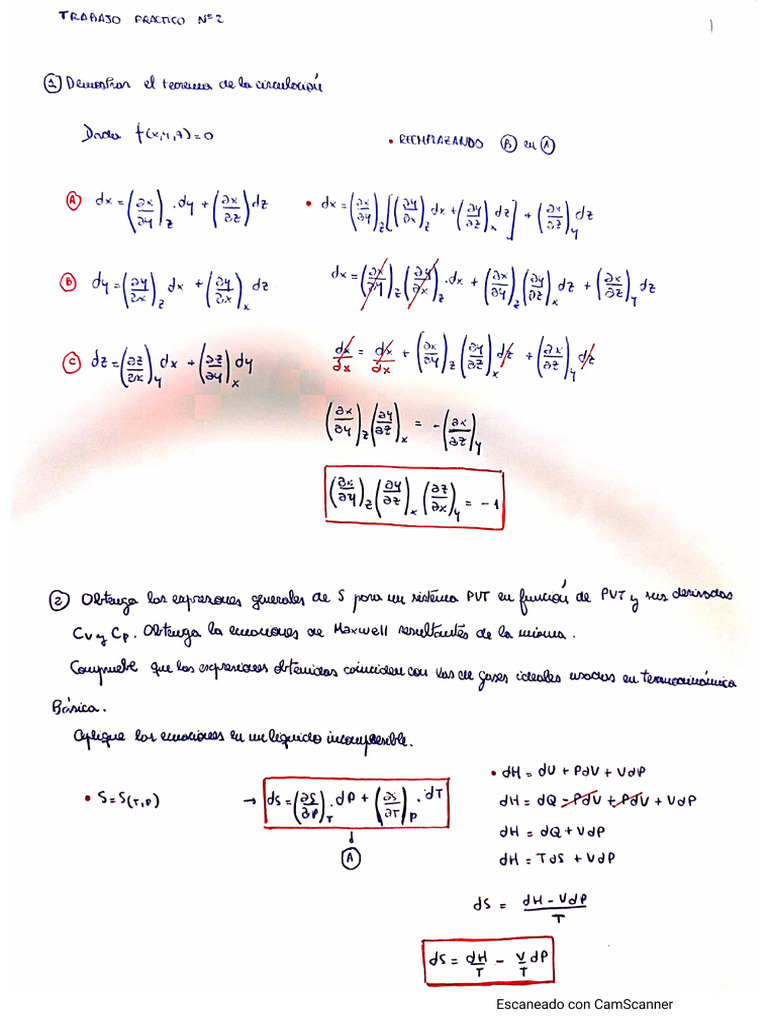 TRABAJO PRACTICO Nº2
1
① Demostrar el teorema de la circulación
Dada f(x,y,z)=0
• REEMPLAZANDO Ⓑ en Ⓐ
Ⓐ dx = (∂x/∂y)_z . dy + (∂x/∂z) dz
• dx = (∂x/∂y)_z [(∂y/∂x)_z dx + (∂y/∂z)_x dz] + (∂x/∂z)_y dz
Ⓑ dy = (∂y/∂x)_z dx + (∂y/∂x)_x dz
dx = (∂x/∂y)_z (∂y/∂x)_z . dx + (∂x/∂y)_z (∂y/∂z)_x dz + (∂x/∂z)_y dz
Ⓒ dz = (∂z/∂x)_y dx + (∂z/∂y)_x dy
dx/dx = dx/dx + (∂x/∂y)_z (∂y/∂z)_x dz + (∂x/∂z)_y dz
(∂x/∂y)_z (∂y/∂z)_x = - (∂x/∂z)_y
(∂x/∂y)_z (∂y/∂z)_x (∂z/∂x)_y = -1
② Obtenga las expresiones generales de S para un sistema PVT en función de PVT y sus derivadas
Cv y Cp. Obtenga la ecuaciones de Maxwell resultantes de la misma.
Compruebe que las expresiones obtenidas coinciden con las de gases ideales usados en termodinámica
Básica.
Aplique las ecuaciones en un líquido incompresible.
• S = S(T,P)
→ dS = (∂S/∂P)_T . dP + (∂S/∂T)_P . dT
Ⓐ
• dH = dU + PdV + VdP
dH = dQ - PdV + PdV + VdP
dH = dQ + VdP
dH = TdS + VdP
dS = dH - VdP / T
dS = dH/T - V/T dP
Escaneado con CamScanner